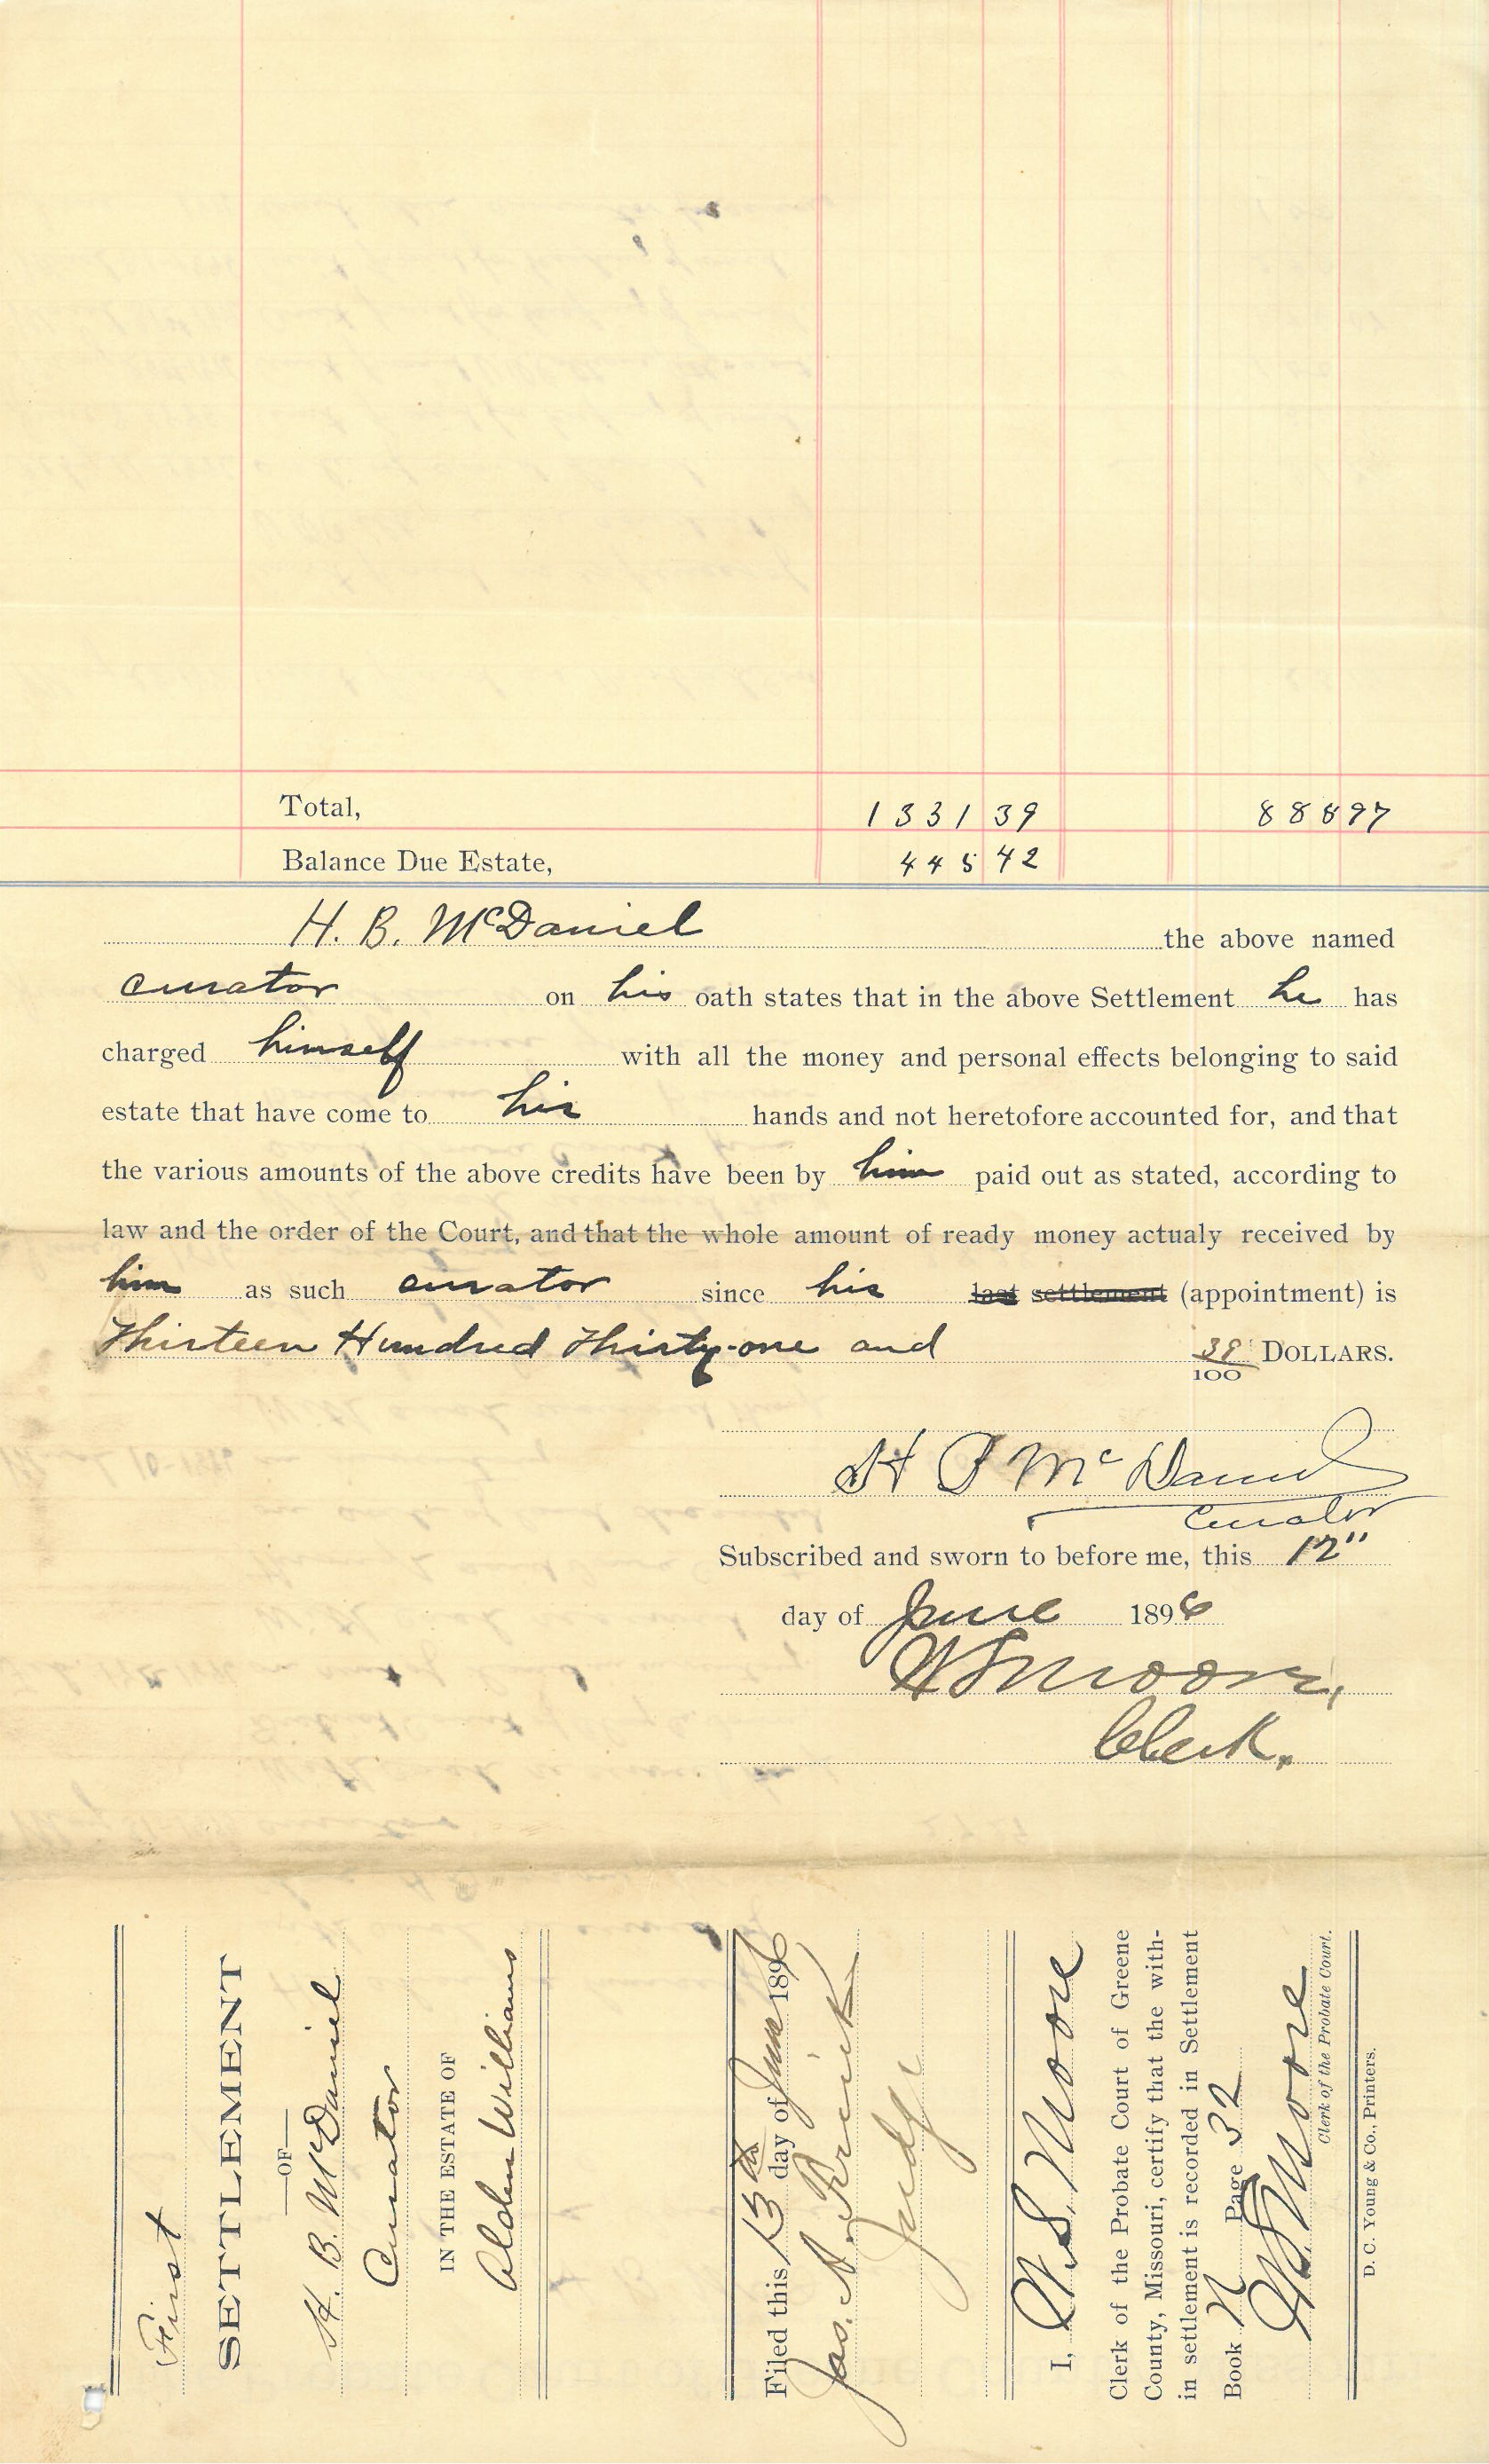 Total, 1331 39 888 97
Balance Due Estate, 445 42
H. B. McDaniel the above named
curator on his oath states that in the above Settlement he has
charged himself with all the money and personal effects belonging to said
estate that have come to his hands and not heretofore accounted for, and that
the various amounts of the above credits have been by him paid out as stated, according to
law and the order of the Court, and that the whole amount of ready money actualy received by
him as such curator since his last settlement (appointment) is
Thirteen Hundred Thirty-one and 39/100 DOLLARS.
H B McDaniel
Curator
Subscribed and sworn to before me, this 12"
day of June 1896
W S Moore,
Clerk.
First
SETTLEMENT
—OF—
H. B. McDaniel
Curator
IN THE ESTATE OF
Alden Williams
Filed this 13th day of June 1896
Jas. A.
Judge
I, W. S. Moore
Clerk of the Probate Court of Greene
County, Missouri, certify that the with-
in settlement is recorded in Settlement
Book N Page 32
W S Moore
Clerk of the Probate Court.
D. C. Young & Co., Printers.